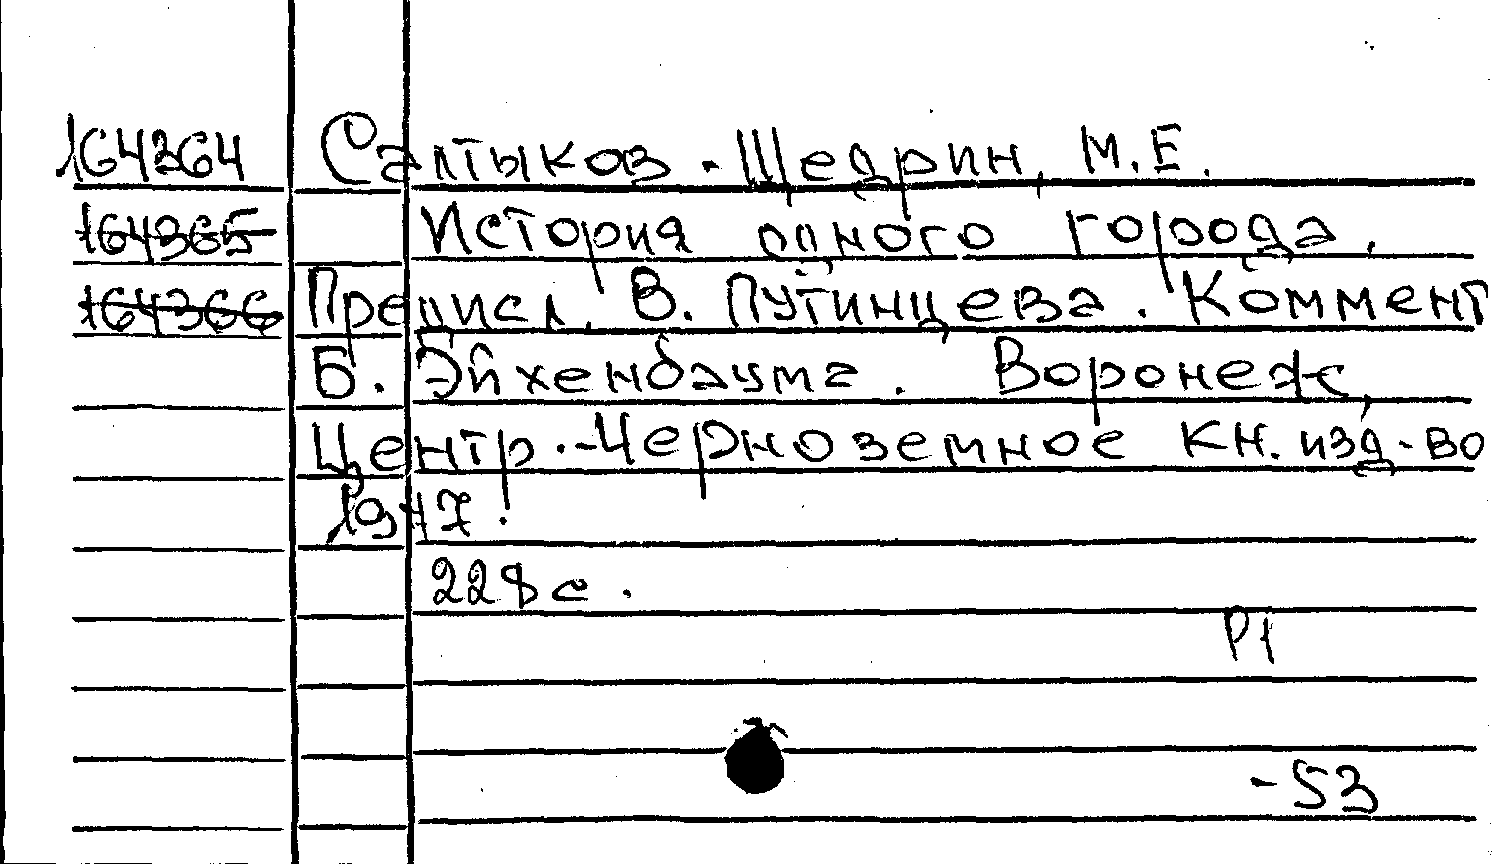 164364 Салтыков-Щедрин, М.Е.
164365 История одного города.
164366 Предисл. В. Путинцева. Коммент
Б. Эйхенбаума. Воронеж,
Центр.-Черноземное кн. изд-во
1947.
228 с.
Р1
-53